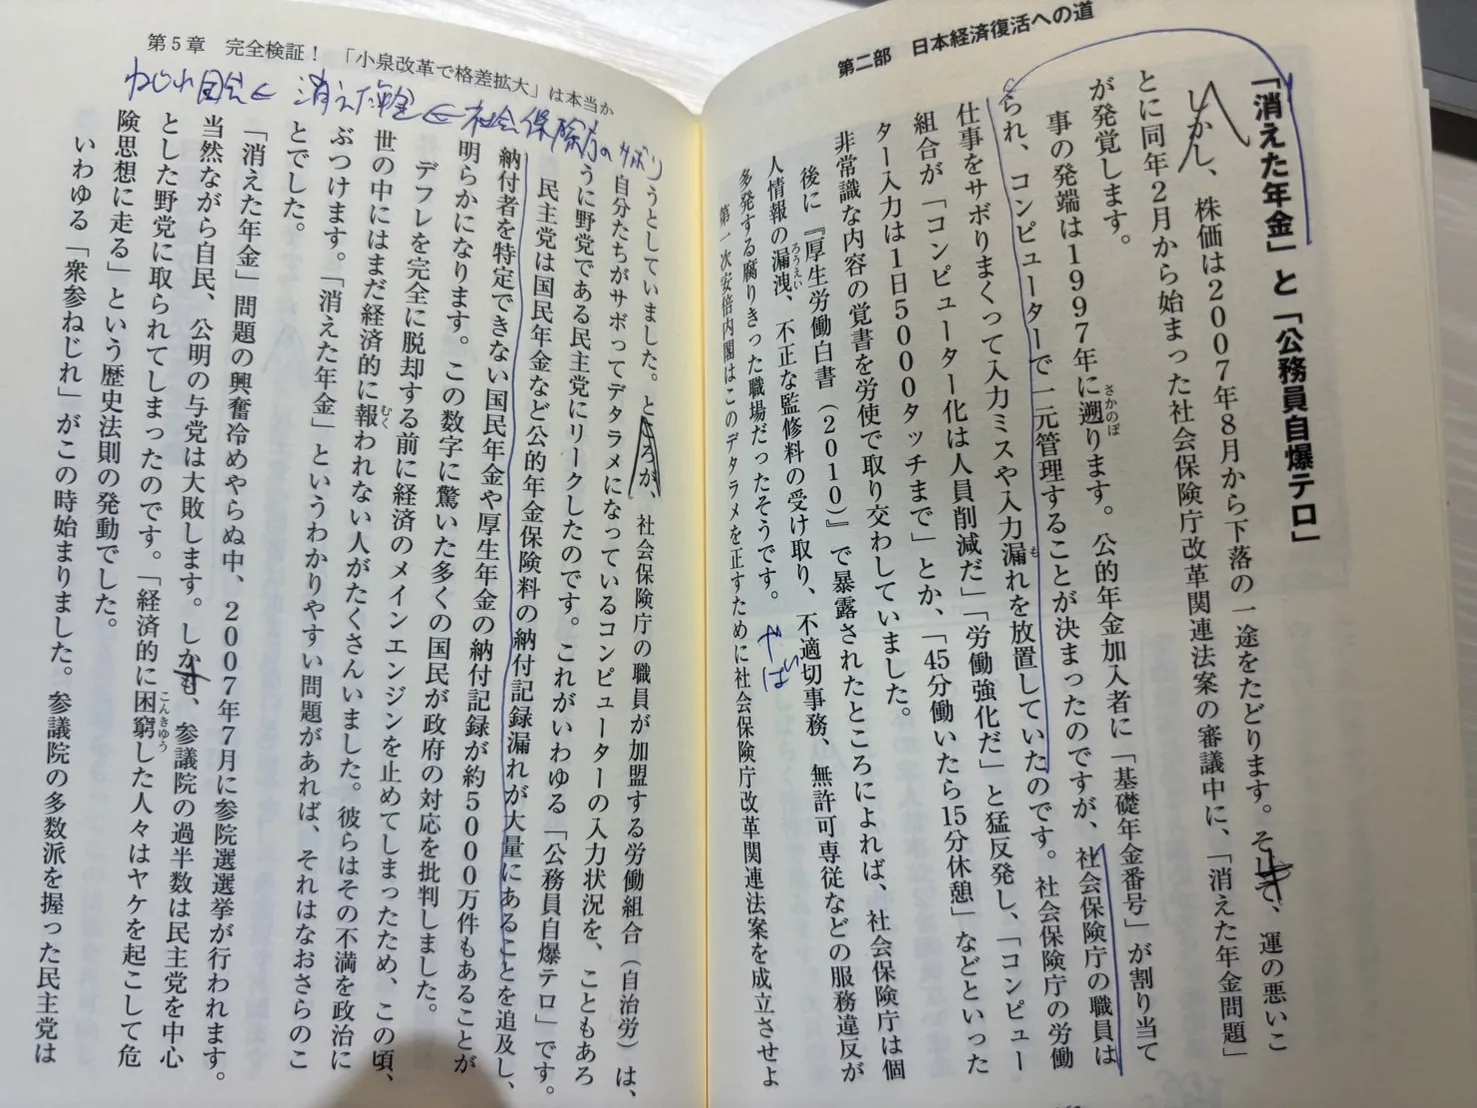 第二部　日本経済復活への道
「消えた年金」と「公務員自爆テロ」
しかし、株価は2007年8月から下落の一途をたどります。そして、運の悪いこ
とに同年2月から始まった社会保険庁改革関連法案の審議中に、「消えた年金問題」
が発覚します。
事の発端は1997年に遡ります。公的年金加入者に「基礎年金番号」が割り当て
さかのぼ
られ、コンピューターで一元管理することが決まったのですが、社会保険庁の職員は
仕事をサボりまくって入力ミスや入力漏れを放置していたのです。社会保険庁の労働
も
組合が「コンピュータ化は人員削減だ」「労働強化だ」と猛反発し、「コンピュー
ター入力は1日5000タッチまで」とか、「45分働いたら15分休憩」などといった
非常識な内容の覚書を労使で取り交わしていました。
後に『厚生労働白書（2010）』で暴露されたところによれば、社会保険庁は個
人情報の漏洩、不正な監修料の受け取り、不適切事務、無許可専従などの服務違反が
ろうえい
多発する腐りきった職場だったそうです。
やばい
第一次安倍内閣はこのデタラメを正すために社会保険庁改革関連法案を成立させよ
第5章　完全検証！　「小泉改革で格差拡大」は本当か
ねじれ国会← 消えた年金 ← 社会保険庁のサボり
うとしていました。ところが、社会保険庁の職員が加盟する労働組合（自治労）は、
自分たちがサボってデタラメになっているコンピューターの入力状況を、こともあろ
うに野党である民主党にリークしたのです。これがいわゆる「公務員自爆テロ」です。
民主党は国民年金など公的年金保険料の納付記録漏れが大量にあることを追及し、
納付者を特定できない国民年金や厚生年金の納付記録が約5000万件もあることが
明らかになります。この数字に驚いた多くの国民が政府の対応を批判しました。
デフレを完全に脱却する前に経済のメインエンジンを止めてしまったため、この頃、
世の中にはまだ経済的に報われない人がたくさんいました。彼らはその不満を政治に
むく
ぶつけます。「消えた年金」というわかりやすい問題があれば、それはなおさらのこ
とでした。
「消えた年金」問題の興奮冷めやらぬ中、2007年7月に参院選選挙が行われます。
当然ながら自民、公明の与党は大敗します。しかも、参議院の過半数は民主党を中心
とした野党に取られてしまったのです。「経済的に困窮した人々はヤケを起こして危
こんきゆう
険思想に走る」という歴史法則の発動でした。
いわゆる「衆参ねじれ」がこの時始まりました。参議院の多数派を握った民主党は